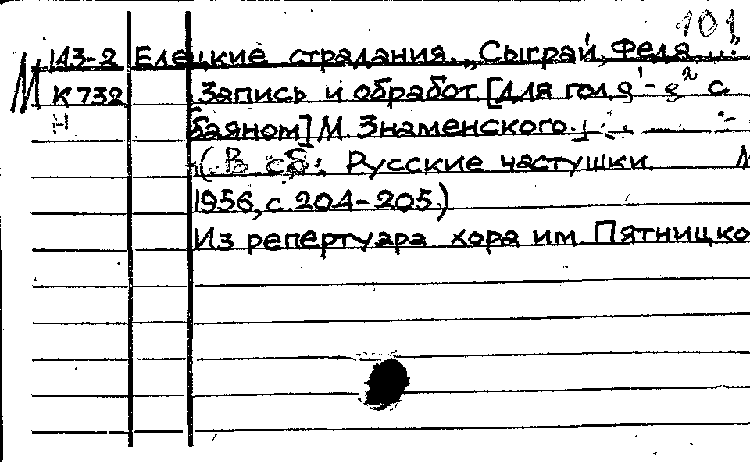 101
М 143-2 Елецкие страдания. „Сыграй, Федя..."
К 732 Запись и обработ. [для гол. g¹-g² с
Н баяном] М. Знаменского.
(В сб: Русские частушки. М
1956, с. 204-205.)
Из репертуара хора им. Пятницко